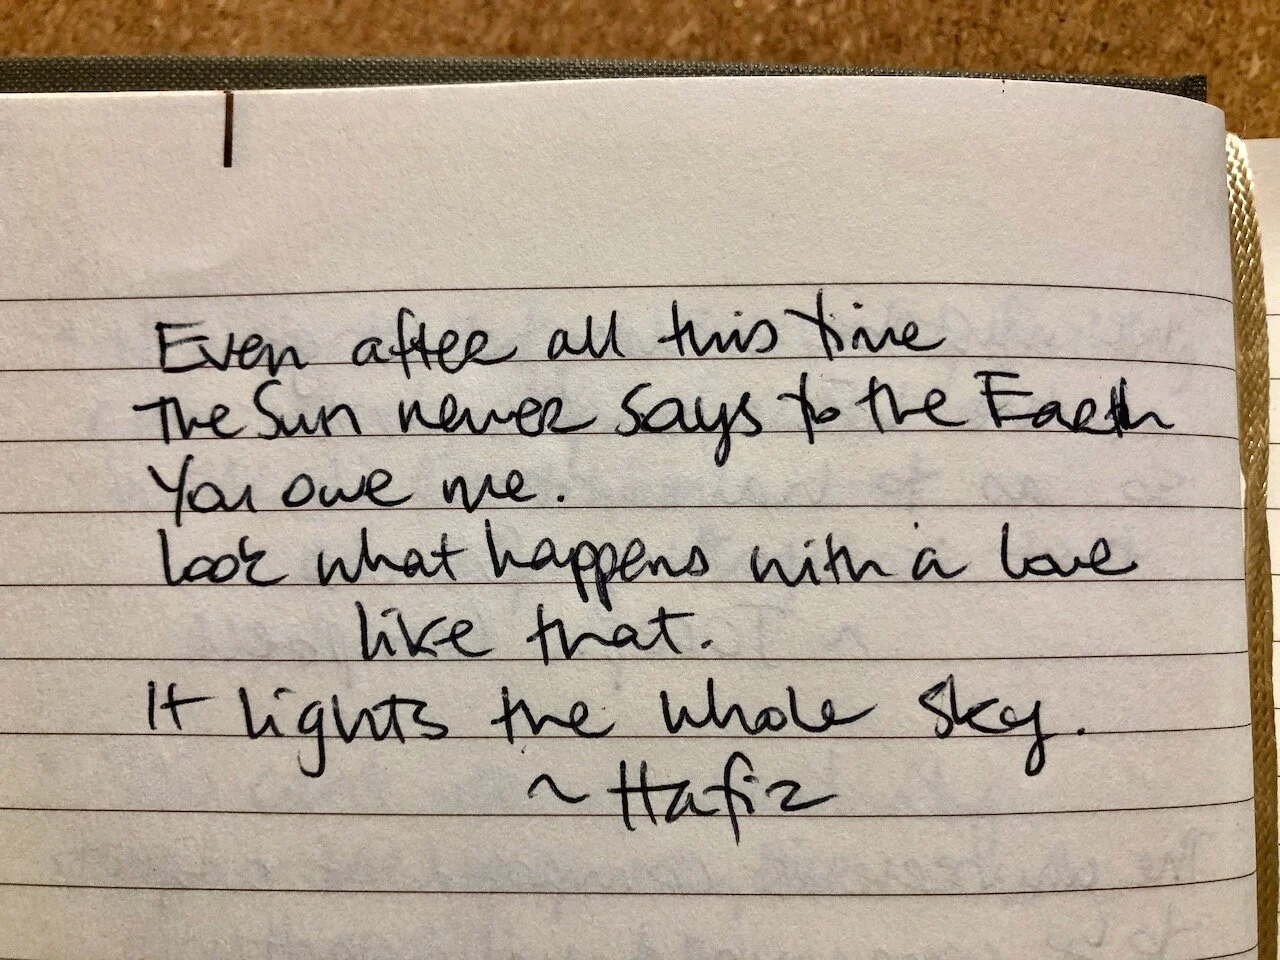 Even after all this time
The Sun never says to the Earth
You owe me.
Look what happens with a love
like that.
It lights the whole sky.
~ Hafiz